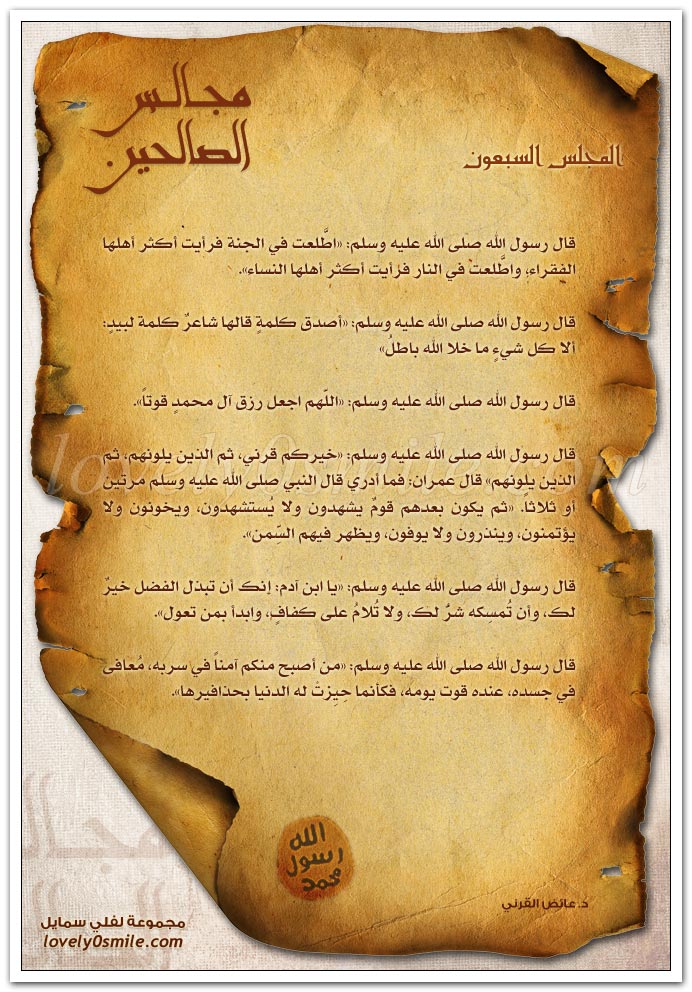 مجالس
الصالحين
المجلس السبعون
قال رسول الله صلى الله عليه وسلم: «اطَّلعت في الجنة فرأيت أكثر أهلها
الفقراء، واطَّلعت في النار فرأيت أكثر أهلها النساء».
قال رسول الله صلى الله عليه وسلم: «أصدق كلمةٍ قالها شاعرٌ كلمة لبيدٍ:
ألا كل شيءٍ ما خلا الله باطلُ»
قال رسول الله صلى الله عليه وسلم: «اللّهم اجعل رزق آل محمدٍ قوتاً».
قال رسول الله صلى الله عليه وسلم: «خيركم قرني، ثم الذين يلونهم، ثم
الذين يلونهم» قال عمران: فما أدري قال النبي صلى الله عليه وسلم مرتين
أو ثلاثاً. «ثم يكون بعدهم قومٌ يشهدون ولا يُستشهدون، ويخونون ولا
يؤتمنون، وينذرون ولا يوفون، ويظهر فيهم السِّمن».
قال رسول الله صلى الله عليه وسلم: «يا ابن آدم: إنك أن تبذل الفضل خيرٌ
لك، وأن تُمسكه شرٌ لك، ولا تلامُ على كفافٍ، وابدأ بمن تعول».
قال رسول الله صلى الله عليه وسلم: «من أصبح منكم آمناً في سربه، مُعافى
في جسده، عنده قوت يومه، فكأنما حِيزتْ له الدنيا بحذافيرها».
lovely0smile.com
الله
رسول
محمد
د. عائض القرني
مجالس
الصالحين
مجموعة لفلي سمايل
lovely0smile.com